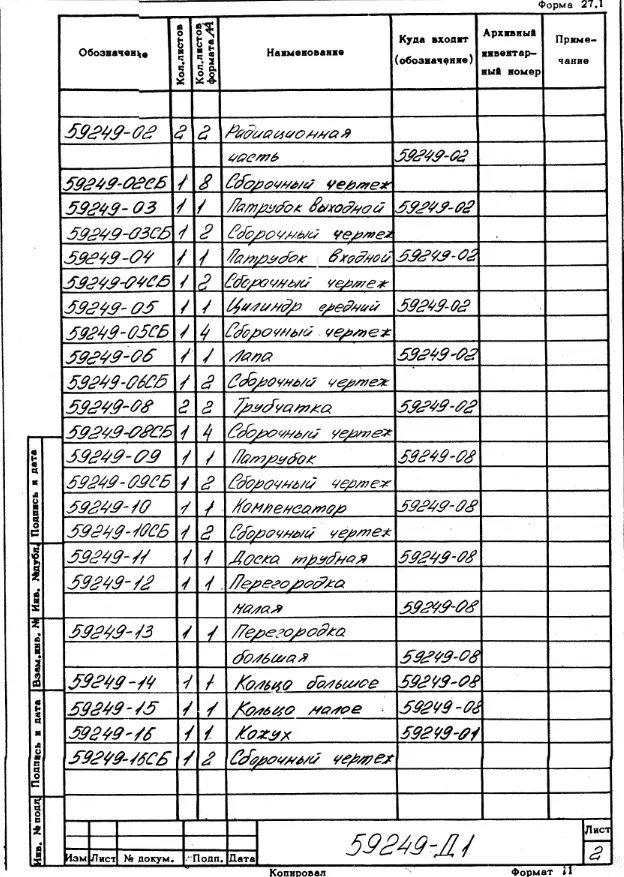 Форма 27.1
Обозначение Кол.листов Кол.листов формата А4 Наименование Куда входит (обозначение) Архивный инвентар- ный номер Приме- чание
59249-02 2 2 Радиационная
часть 59249-02
59249-02СБ 1 8 Сборочный чертеж
59249-03 1 1 Патрубок выходной 59249-02
59249-03СБ 1 2 Сборочный чертеж
59249-04 1 1 Патрубок входной 59249-02
59249-04СБ 1 2 Сборочный чертеж
59249-05 1 1 Цилиндр средний 59249-02
59249-05СБ 1 4 Сборочный чертеж
59249-06 1 1 Лапа 59249-02
59249-06СБ 1 2 Сборочный чертеж
59249-08 2 2 Трубчатка 59249-02
59249-08СБ 1 4 Сборочный чертеж
59249-09 1 1 Патрубок 59249-08
59249-09СБ 1 2 Сборочный чертеж
59249-10 1 1 Компенсатор 59249-08
59249-10СБ 1 2 Сборочный чертеж
59249-11 1 1 Доска трубная 59249-08
59249-12 1 1 Перегородка
малая 59249-08
59249-13 1 1 Перегородка
большая 59249-08
59249-14 1 1 Кольцо большое 59249-08
59249-15 1 1 Кольцо малое 59249-08
59249-16 1 1 Кожух 59249-01
59249-16СБ 1 2 Сборочный чертеж
Подпись и дата
Инв. №дубл.
Взам.инв. №
Подпись и дата
Инв. №подл.
Изм Лист № докум. Подп. Дата
59249-Д1
Лист
2
Копировал Формат 11